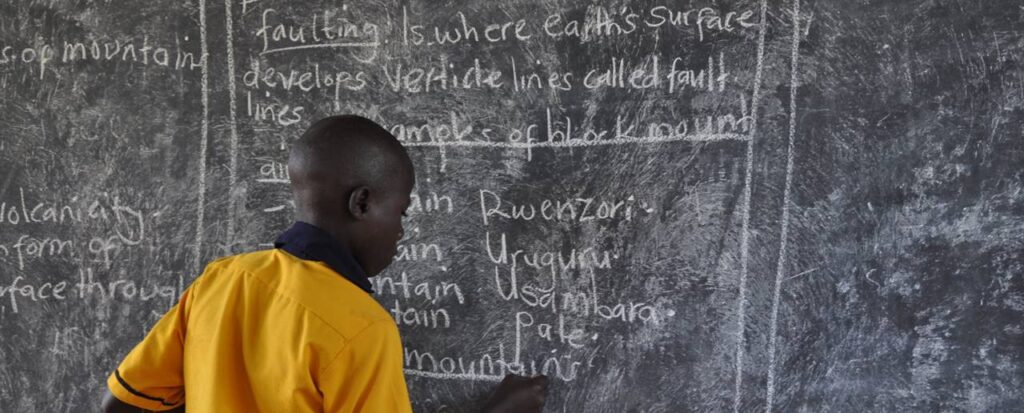 s of mountain
volcanicity.
form of
face through
faulting: Is where earth's surface
develops verticle lines called fault
lines.
amples of block mount
ain Rwenzori.
ain Uruguru.
ntain Usambara.
tain Pale.
mountains